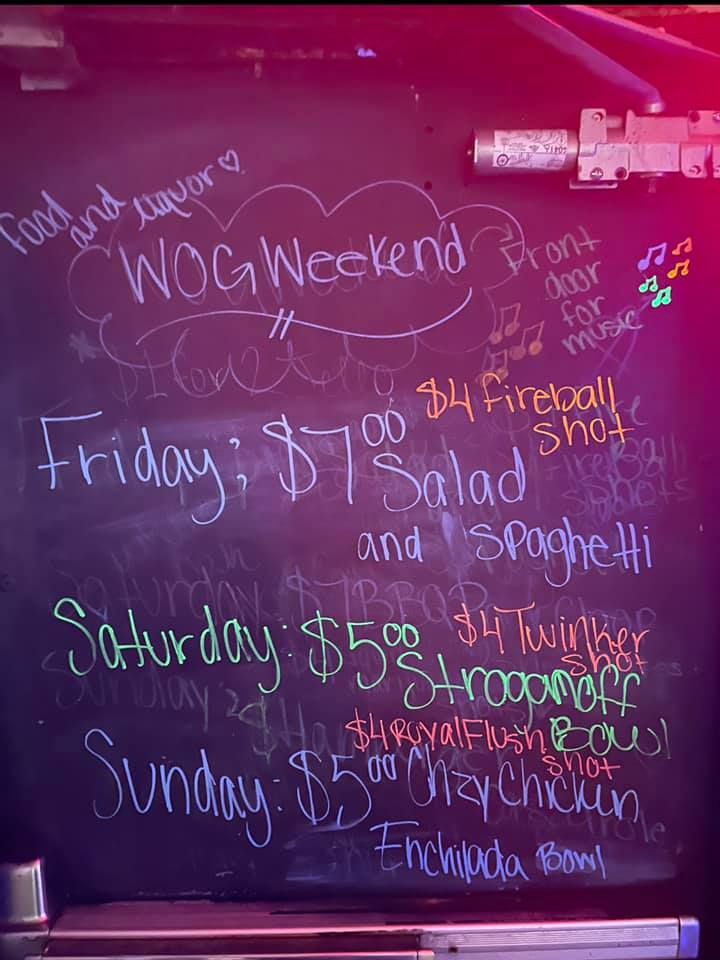 Food and Liquor ♡
WOG Weekend
Front
door
for
music
$4 Fireball
shot
Friday; $7⁰⁰ Salad
and Spaghetti
$4 Twinker
shot
Saturday: $5⁰⁰ Stroganoff
Bowl
$4 Royal Flush
shot
Sunday: $5⁰⁰ Chzy Chicken
Enchilada Bowl